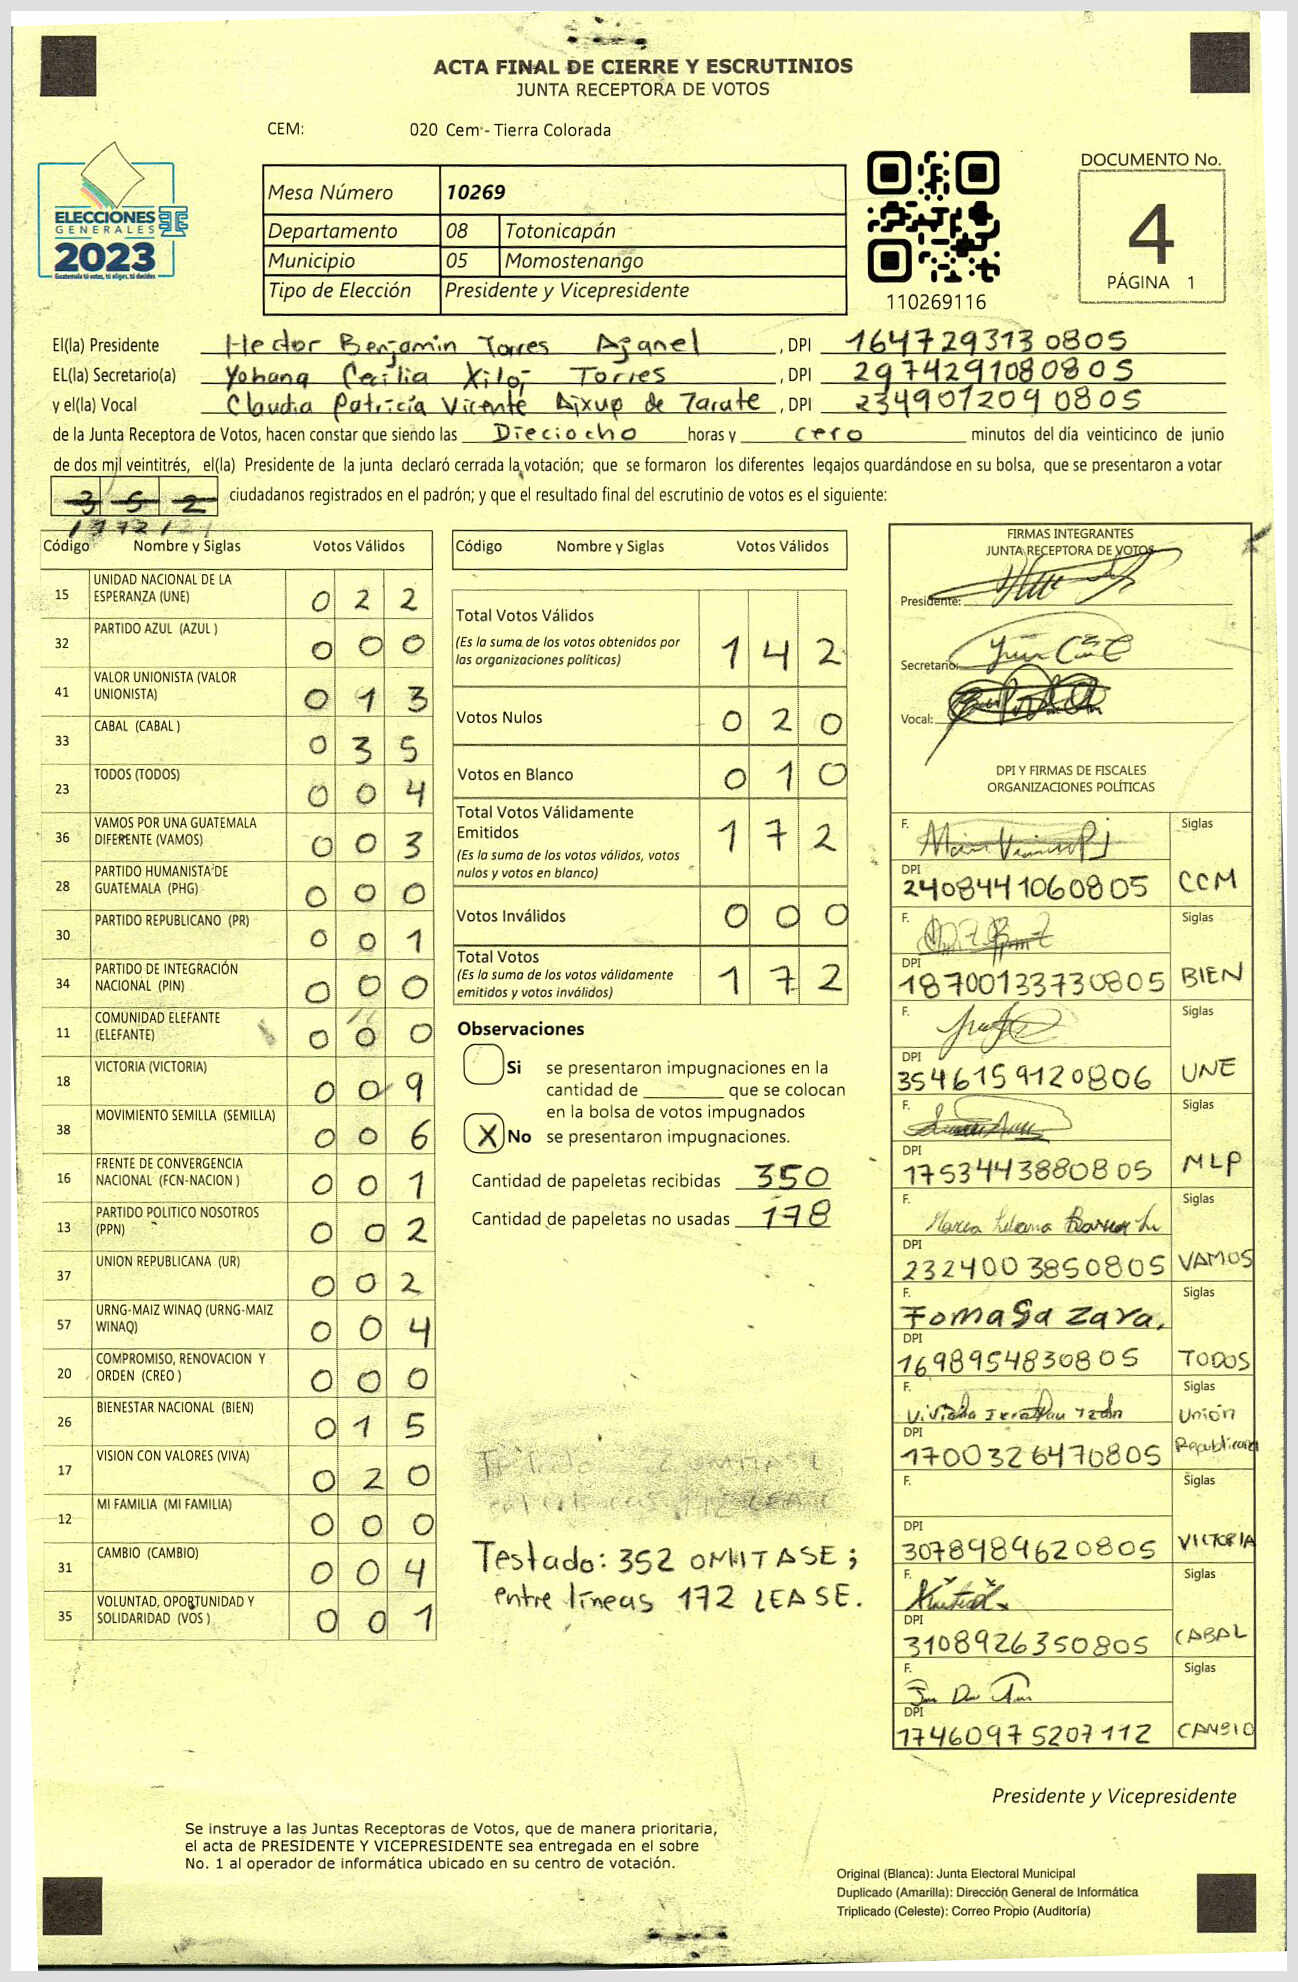 ACTA FINAL DE CIERRE Y ESCRUTINIOS
JUNTA RECEPTORA DE VOTOS
CEM: 020 Cem - Tierra Colorada
ELECCIONES
GENERALES
2023
Guatemala tú votas, tú eliges, tú decides
Mesa Número 10269
Departamento 08 Totonicapán
Municipio 05 Momostenango
Tipo de Elección Presidente y Vicepresidente
110269116
DOCUMENTO No.
4
PÁGINA 1
El(la) Presidente Hector Benjamin Torres Ajanel , DPI 1647293130805
EL(la) Secretario(a) Yohana Cecilia Xiloj Torres , DPI 2974291080805
y el(la) Vocal Claudia Patricia Vicente Aixup de Zarate , DPI 2349012090805
de la Junta Receptora de Votos, hacen constar que siendo las Dieciocho horas y cero minutos del día veinticinco de junio
de dos mil veintitrés, el(la) Presidente de la junta declaró cerrada la votación; que se formaron los diferentes legajos guardándose en su bolsa, que se presentaron a votar
352 ciudadanos registrados en el padrón; y que el resultado final del escrutinio de votos es el siguiente:
172
Código Nombre y Siglas Votos Válidos
15 UNIDAD NACIONAL DE LA ESPERANZA (UNE) 0 2 2
32 PARTIDO AZUL (AZUL ) 0 0 0
41 VALOR UNIONISTA (VALOR UNIONISTA) 0 1 3
33 CABAL (CABAL ) 0 3 5
23 TODOS (TODOS) 0 0 4
36 VAMOS POR UNA GUATEMALA DIFERENTE (VAMOS) 0 0 3
28 PARTIDO HUMANISTA DE GUATEMALA (PHG) 0 0 0
30 PARTIDO REPUBLICANO (PR) 0 0 1
34 PARTIDO DE INTEGRACIÓN NACIONAL (PIN) 0 0 0
11 COMUNIDAD ELEFANTE (ELEFANTE) 0 0 0
18 VICTORIA (VICTORIA) 0 0 9
38 MOVIMIENTO SEMILLA (SEMILLA) 0 0 6
16 FRENTE DE CONVERGENCIA NACIONAL (FCN-NACION ) 0 0 1
13 PARTIDO POLITICO NOSOTROS (PPN) 0 0 2
37 UNION REPUBLICANA (UR) 0 0 2
57 URNG-MAIZ WINAQ (URNG-MAIZ WINAQ) 0 0 4
20 COMPROMISO, RENOVACION Y ORDEN (CREO ) 0 0 0
26 BIENESTAR NACIONAL (BIEN) 0 1 5
17 VISION CON VALORES (VIVA) 0 2 0
12 MI FAMILIA (MI FAMILIA) 0 0 0
31 CAMBIO (CAMBIO) 0 0 4
35 VOLUNTAD, OPORTUNIDAD Y SOLIDARIDAD (VOS ) 0 0 1
Código Nombre y Siglas Votos Válidos
Total Votos Válidos 1 4 2
(Es la suma de los votos obtenidos por
las organizaciones políticas)
Votos Nulos 0 2 0
Votos en Blanco 0 1 0
Total Votos Válidamente
Emitidos 1 7 2
(Es la suma de los votos válidos, votos
nulos y votos en blanco)
Votos Inválidos 0 0 0
Total Votos 1 7 2
(Es la suma de los votos válidamente
emitidos y votos inválidos)
Observaciones
Si se presentaron impugnaciones en la
cantidad de ________ que se colocan
en la bolsa de votos impugnados
X No se presentaron impugnaciones.
Cantidad de papeletas recibidas 350
Cantidad de papeletas no usadas 178
Testado: 352 OMITASE;
entre líneas 172 LEASE.
FIRMAS INTEGRANTES
JUNTA RECEPTORA DE VOTOS
Presidente:
Secretario:
Vocal:
DPI Y FIRMAS DE FISCALES
ORGANIZACIONES POLÍTICAS
F. Siglas
DPI 2408441060805 CCM
F. Siglas
DPI 18700133730805 BIEN
F. Siglas
DPI 3546159120806 UNE
F. Siglas
DPI 1753443880805 MLP
F. Siglas
DPI 2324003850805 VAMOS
F. Tomasa Zara. Siglas
DPI 1698954830805 TODOS
F. Siglas
DPI 1700326470805 Unión Republicana
F. Siglas
DPI 3078989620805 VICTORIA
F. Siglas
DPI 3108926350805 CABAL
F. Siglas
DPI 17460975207112 CAMBIO
Presidente y Vicepresidente
Se instruye a las Juntas Receptoras de Votos, que de manera prioritaria,
el acta de PRESIDENTE Y VICEPRESIDENTE sea entregada en el sobre
No. 1 al operador de informática ubicado en su centro de votación.
Original (Blanca): Junta Electoral Municipal
Duplicado (Amarilla): Dirección General de Informática
Triplicado (Celeste): Correo Propio (Auditoría)